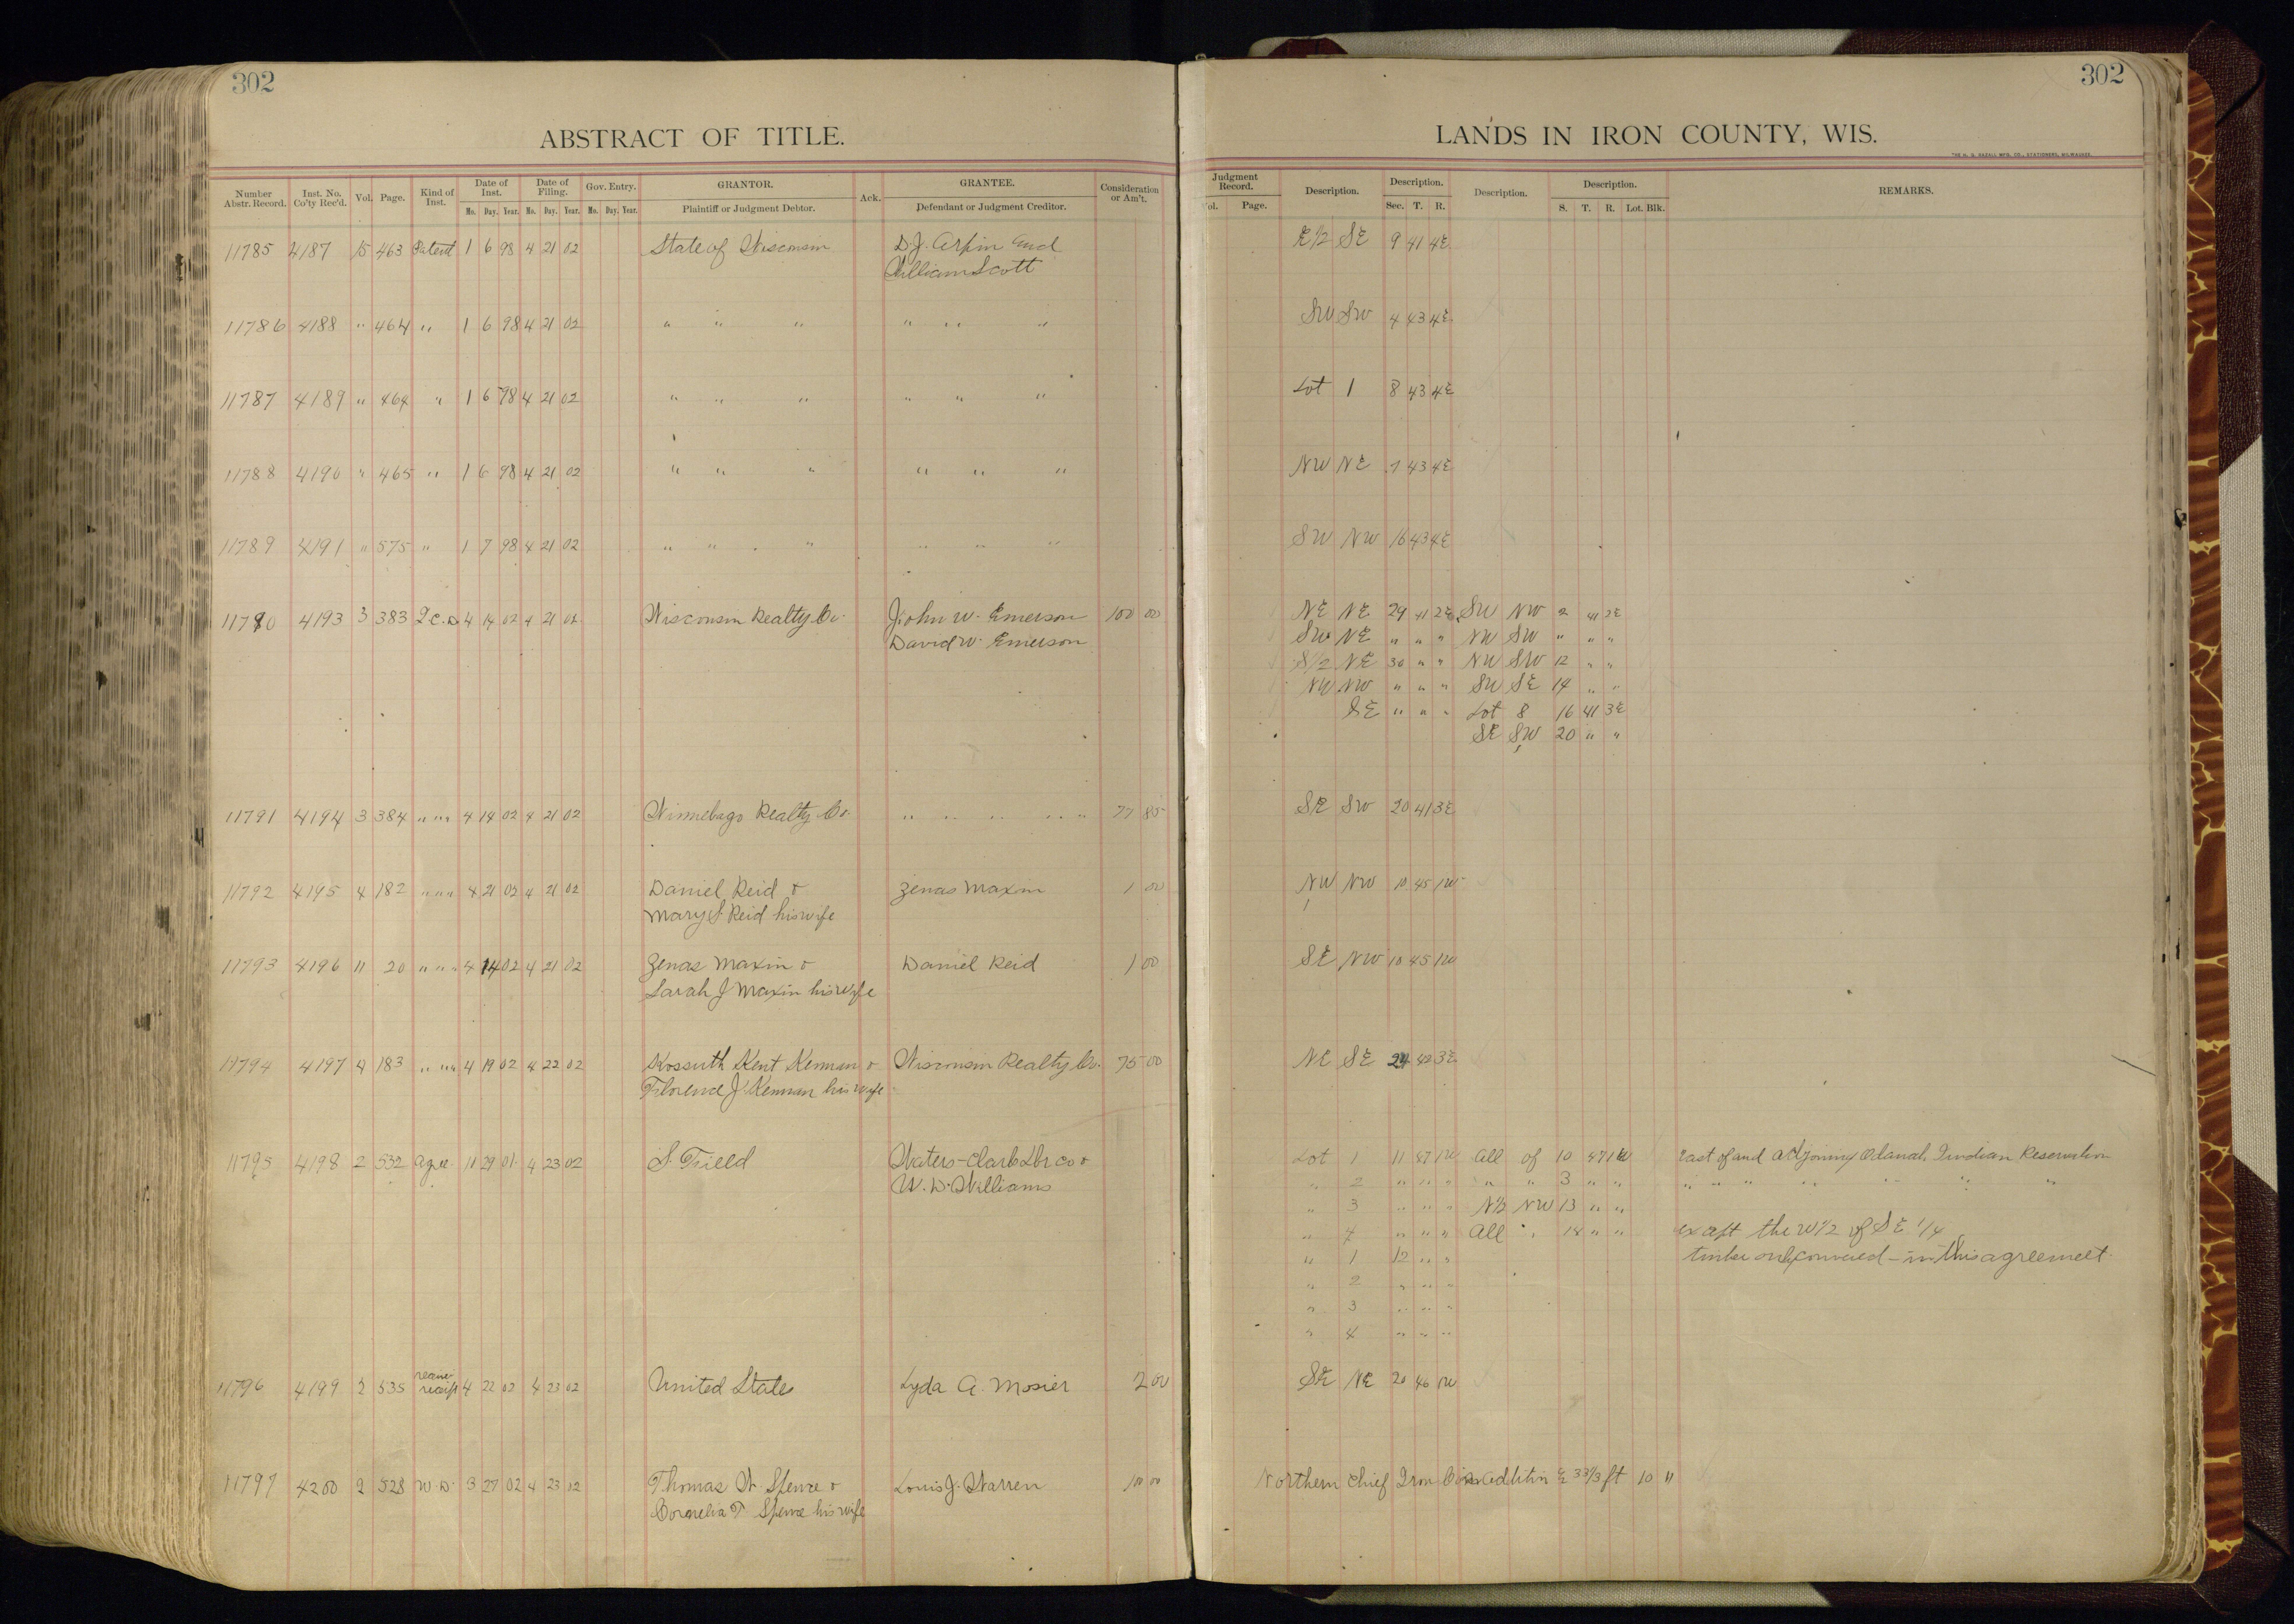 302
302
ABSTRACT OF TITLE.
LANDS IN IRON COUNTY, WIS.
Number Abstr. Record. Inst. No. Co'ty Rec'd. Vol. Page. Kind of Inst. Date of Inst. Date of Filing. Gov. Entry. GRANTOR. Ack. GRANTEE. Consideration or Am't.
Mo. Day. Year. Mo. Day. Year. Mo. Day. Year. Plaintiff or Judgment Debtor. Defendant or Judgment Creditor.
Judgment Record. Description. Description. Description. Description. REMARKS.
Vol. Page. Sec. T. R. S. T. R. Lot. Blk.
11785 4187 15 463 Patent 1 6 98 4 21 02 State of Wisconsin D.J. Arpin and E½ SE 9 41 4E
William Scott
11786 4188 " 464 " 1 6 98 4 21 02 " " " " " " SW SW 4 43 4E
11787 4189 " 464 " 1 6 98 4 21 02 " " " " " " Lot 1 8 43 4E
11788 4190 " 465 " 1 6 98 4 21 02 " " " " " " NW NE 7 43 4E
11789 4191 " 575 " 1 7 98 4 21 02 " " " " " " SW NW 16 43 4E
11790 4193 3 383 Q.C.D 4 14 02 4 21 02 Wisconsin Realty Co. John W. Emerson 100 00 NE NE 29 41 2E SW NW 2 41 2E
David W. Emerson SW NE " " " NW SW " " "
S½ NE 30 " " NW SW 12 " "
NW NW " " " SW SE 14 " "
SE " " " Lot 8 16 41 3E
SE SW 20 " "
11791 4194 3 384 " " " 4 14 02 4 21 02 Winnebago Realty Co. " " " " " " 77 85 SE SW 20 41 3E
11792 4195 4 182 " " " 4 21 02 4 21 02 Daniel Reid & Zenas Maxin 1 00 NW NW 10 45 1W
Mary S. Reid his wife
11793 4196 11 20 " " " 4 14 02 4 21 02 Zenas Maxin & Daniel Reid 1 00 SE NW 10 45 1W
Sarah J Maxin his wife
11794 4197 4 183 " " " 4 19 02 4 22 02 Kossuth Kent Kennan & Wisconsin Realty Co. 75 00 NE SE 24 42 3E
Florence J Kennan his wife
11795 4198 2 532 Agree. 11 29 01 4 23 02 S. Field Waters-Clark Lbr Co & Lot 1 11 47 1W All of 10 47 1W East of and Adjoining Odanah Indian Reservation
W. D. Williams " 2 " " " " " 3 " " " " " " " " "
" 3 " " " N½ NW 13 " "
" 4 " " " All " " " except the W½ of SE ¼
" 1 12 " " timber only conveyed - in this agreement.
" 2 " " "
" 3 " " "
" 4 " " "
11796 4199 2 535 receipt 4 22 02 4 23 02 United States Lyda A. Mosier 2 00 SE NE 20 46
11797 4200 2 528 W.D. 3 27 02 4 23 02 Thomas W. Spence & Louis J. Warren Northern Chief Iron Co's addition 33⅓ ft 10 11
Cornelia T. Spence his wife